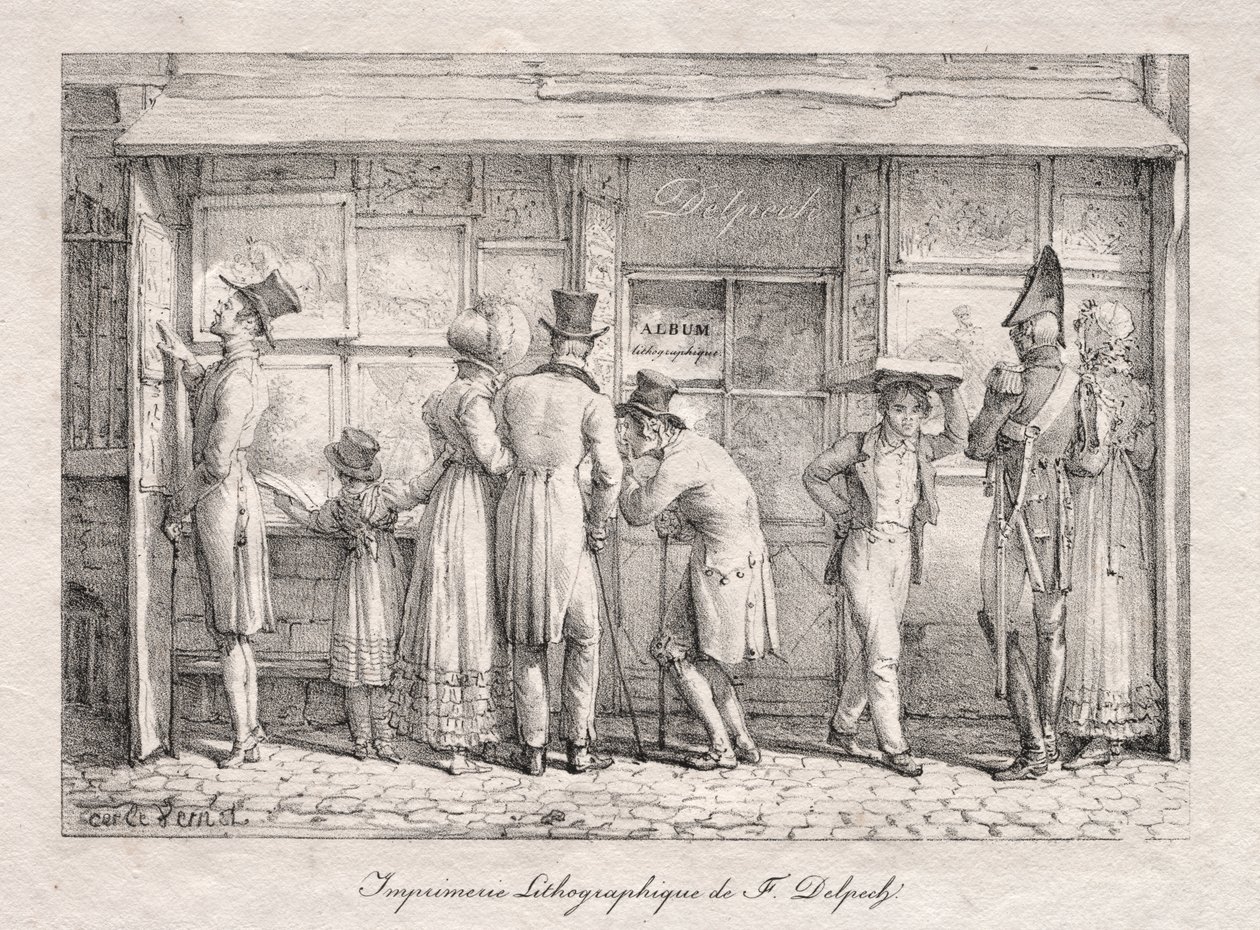 Delpech
ALBUM
lithographique
carle Vernet
Imprimerie Lithographique de F. Delpech.